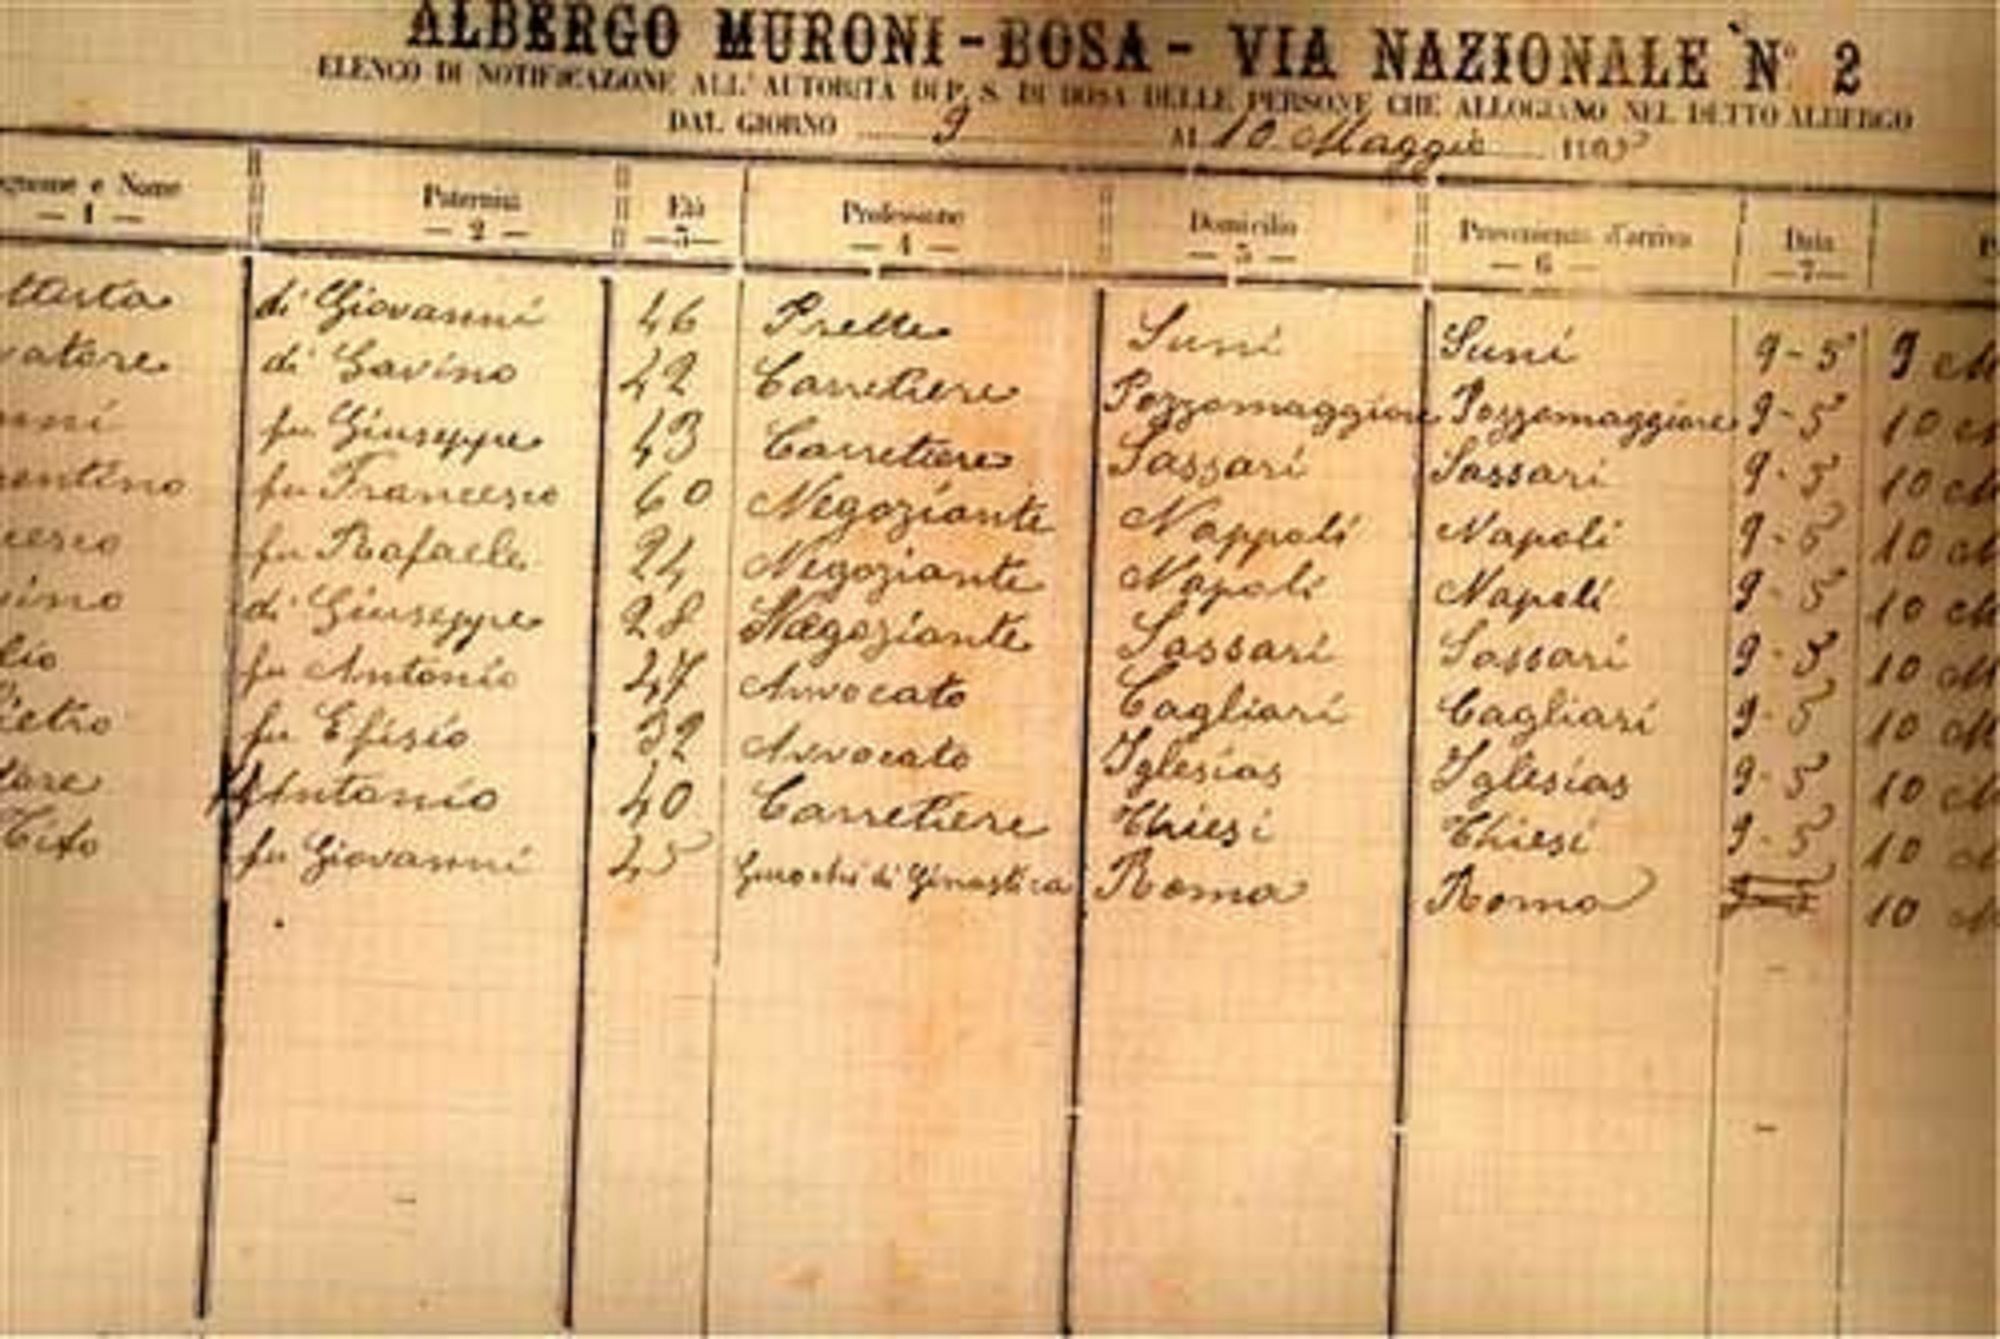 ALBERGO MURONI - BOSA - VIA NAZIONALE N° 2
ELENCO DI NOTIFICAZIONE ALL' AUTORITÀ DI P. S. DI BOSA DELLE PERSONE CHE ALLOGIANO NEL DETTO ALBERGO
DAL GIORNO 9 AL 10 Maggio
gnome e Nome Paternità Età Professione Domicilio Provenienza d'arrivo Data
— 1 — — 2 — —3— — 4 — — 5 — — 6 — —7—
di Giovanni 46 Prette Suni Suni 9-5 9 M
vatore di Gavino 42 Carretiere Pozzomaggiore Pozzomaggiore 9-5 10 M
nni fu Giuseppe 43 Carretiere Sassari Sassari 9-5 10 M
rentino fu Francesco 60 Negoziante Nappoli Napoli 9-5 10 M
cesco fu Rafaele 24 Negoziante Napoli Napoli 9-5 10 M
vino di Giuseppe 28 Negoziante Sassari Sassari 9-5 10 M
lio fu Antonio 47 Avvocato Cagliari Cagliari 9-5 10 M
Pietro fu Efisio 32 Avvocato Iglesias Iglesias 9-5 10 M
tore Antonio 40 Carretiere Thiesi Thiesi 9-5 10 M
Tito fu Giovanni 45 Giuochi di Ginastica Roma Roma 10 M